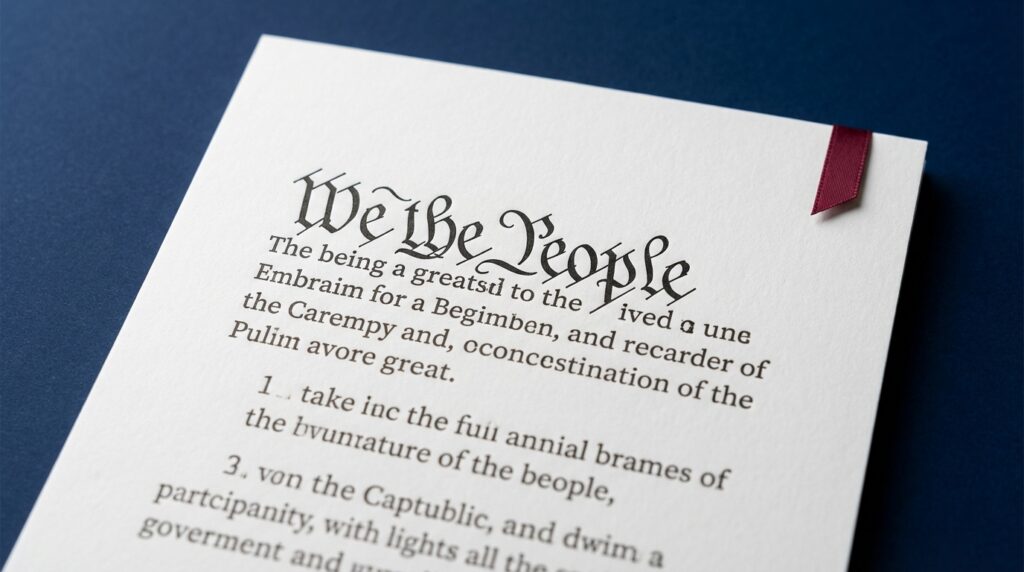 We the People
The being a greatsd to the ived a une
Embraim for a Begimben, and recarder of
the Carempy and, oconcestination of the
Pulin avore great.
1. take inc the full annial brames of
the bvumature of the beople,
3. von the Captublic, and dwim a
partcipanity, with lights all the
goverment and